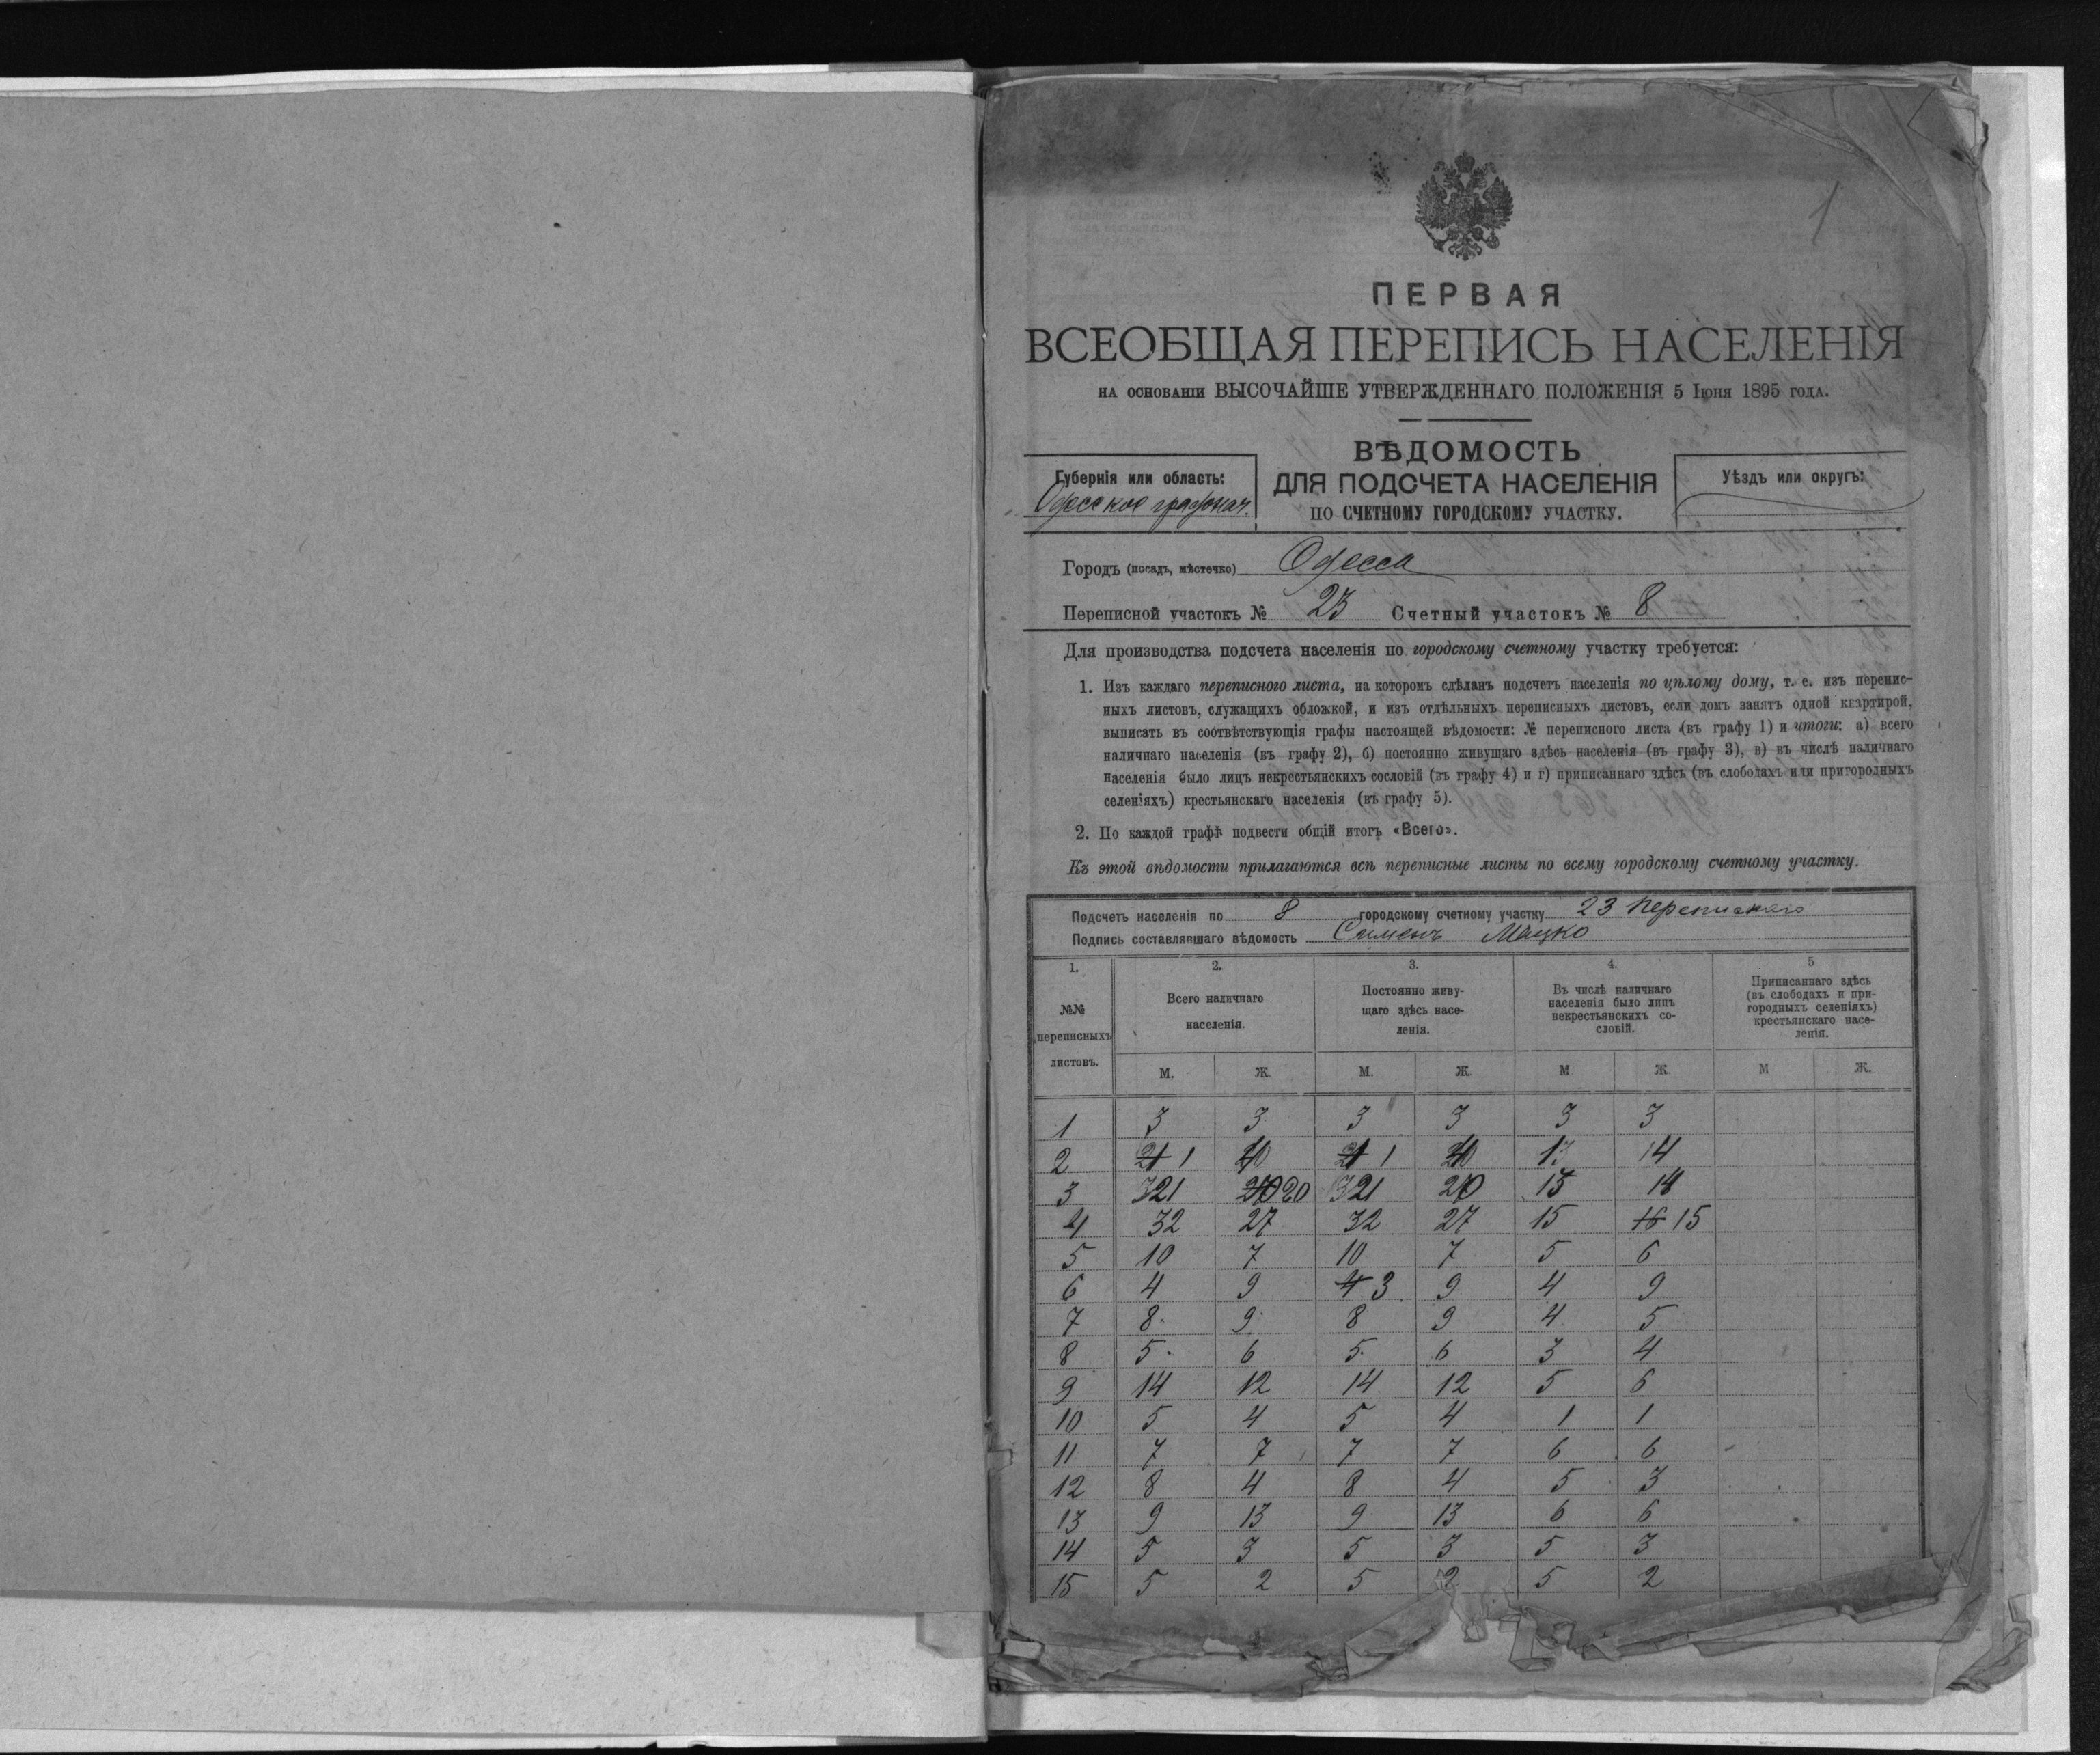 1
ПЕРВАЯ
ВСЕОБЩАЯ ПЕРЕПИСЬ НАСЕЛЕНІЯ
на основаніи ВЫСОЧАЙШЕ УТВЕРЖДЕННАГО ПОЛОЖЕНІЯ 5 Іюня 1895 года.
ВѢДОМОСТЬ
ДЛЯ ПОДСЧЕТА НАСЕЛЕНІЯ
ПО СЧЕТНОМУ ГОРОДСКОМУ УЧАСТКУ.
Губернія или область:
Одесское градонач.
Уѣздъ или округъ:
Городъ (посадъ, мѣстечко) Одесса
Переписной участокъ № 23 Счетный участокъ № 8
Для производства подсчета населенія по городскому счетному участку требуется:
1. Изъ каждаго переписного листа, на которомъ сдѣланъ подсчетъ населенія по цѣлому дому, т. е. изъ перепис-
ныхъ листовъ, служащихъ обложкой, и изъ отдѣльныхъ переписныхъ листовъ, если домъ занятъ одной квартирой,
выписать въ соотвѣтствующія графы настоящей вѣдомости: № переписного листа (въ графу 1) и итоги: а) всего
наличнаго населенія (въ графу 2), б) постоянно живущаго здѣсь населенія (въ графу 3), в) въ числѣ наличнаго
населенія было лицъ некрестьянскихъ сословій (въ графу 4) и г) приписаннаго здѣсь (въ слободахъ или пригородныхъ
селеніяхъ) крестьянскаго населенія (въ графу 5).
2. По каждой графѣ подвести общій итогъ «Всего».
Къ этой вѣдомости прилагаются всѣ переписные листы по всему городскому счетному участку.
Подсчетъ населенія по 8 городскому счетному участку 23 переписного
Подпись составлявшаго вѣдомость Сименъ Мацко
1. 2. 3. 4. 5
№№
переписныхъ
листовъ.
Всего наличнаго
населенія.
Постоянно живу-
щаго здѣсь насе-
ленія.
Въ числѣ наличнаго
населенія было лицъ
некрестьянскихъ со-
словій.
Приписаннаго здѣсь
(въ слободахъ и при-
городныхъ селеніяхъ)
крестьянскаго насе-
ленія.
М. Ж. М. Ж. М Ж. М Ж.
1 3 3 3 3 3 3
2 1 1 13 14
3 321 20 321 20 15 18
4 32 27 32 27 15 16 15
5 10 7 10 7 5 6
6 4 9 4 3 9 4 9
7 8 9 8 9 4 5
8 5 6 5 6 3 4
9 14 12 14 12 5 6
10 5 4 5 4 1 1
11 7 7 7 7 6 6
12 8 4 8 4 5 3
13 9 13 9 13 6 6
14 5 3 5 3 5 3
15 5 2 5 2 5 2